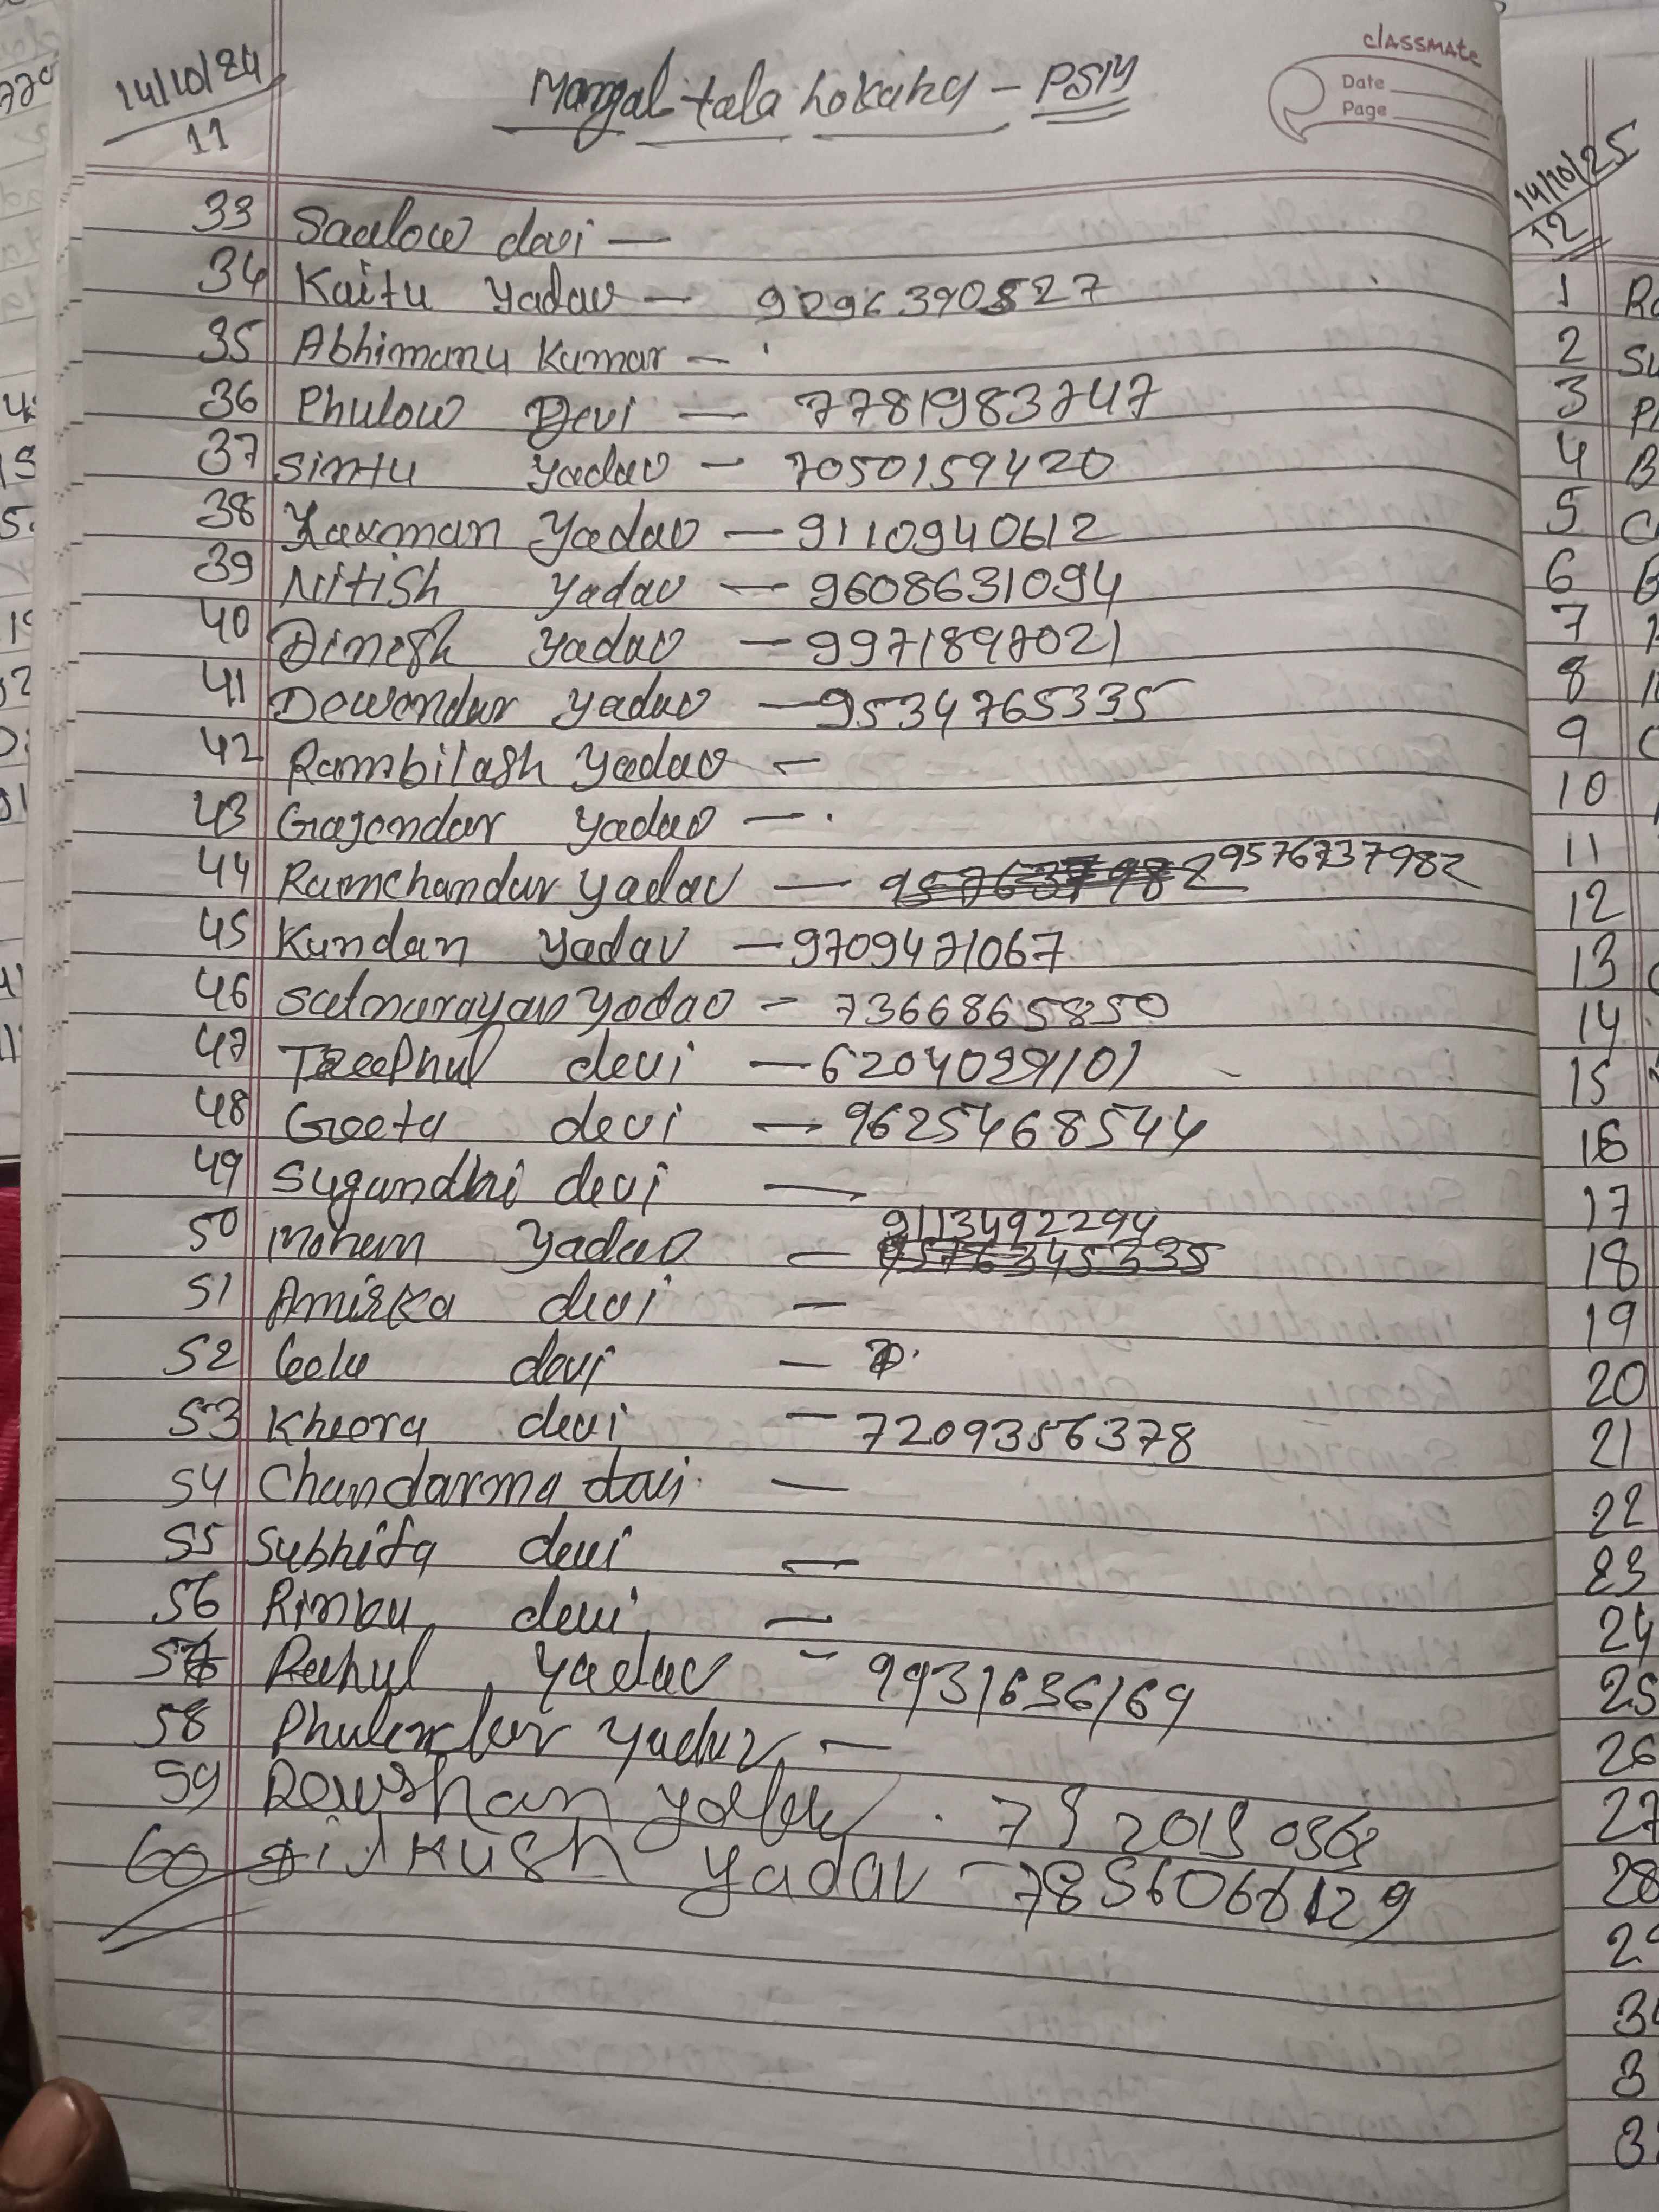 14/10/24
11
Mangal tala Lokaha - PSM
classmate
Date
Page
33 Saalow devi —
34 Kaitu Yadav — 9296390827
35 Abhimanu Kumar —
36 Phulow Devi — 7781983747
37 Sintu Yadav — 7050159420
38 Laxman Yadav — 9110940612
39 Nitish Yadav — 9608631094
40 Dinesh Yadav — 9971897021
41 Dewendar Yadav — 9534765335
42 Rambilash Yadav —
43 Gajendar Yadav —
44 Ramchandar Yadav — 9576737982
45 Kundan Yadav — 9709471067
46 Satnarayan Yadav — 7366865850
47 devi — 6204029101
48 Geeta devi — 9625468544
49 Sugandhi devi —
50 Mohan Yadav — 9113492294
51 Amirka devi —
52 devi —
53 Kheora devi — 7209356378
54 Chandarma devi —
55 Subhita devi —
56 Rinku devi —
57 Rahul Yadav — 9931636169
58 Phulendar Yadav —
59 Rowshan Yadav
60 Dilkush Yadav — 7856066129
14/10/25
12
1
2
3
4
5
6
7
8
9
10
11
12
13
14
15
16
17
18
19
20
21
22
23
24
25
26
27
28